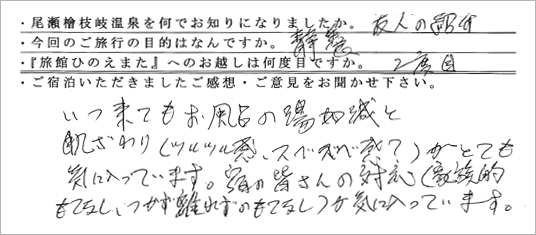 ・尾瀬檜枝岐温泉を何でお知りになりましたか。 友人の紹介
・今回のご旅行の目的はなんですか。 静養
・『旅館ひのえまた』へのお越しは何度目ですか。 2度目
・ご宿泊いただきましたご感想・ご意見をお聞かせ下さい。
いつ来てもお風呂の湯加減と
肌ざわり(ツルツル感、スベスベ感で)がとても
気に入っています。宿の皆さんの対応(家族的
もてなし、つかず離れずのもてなし)が気に入っています。